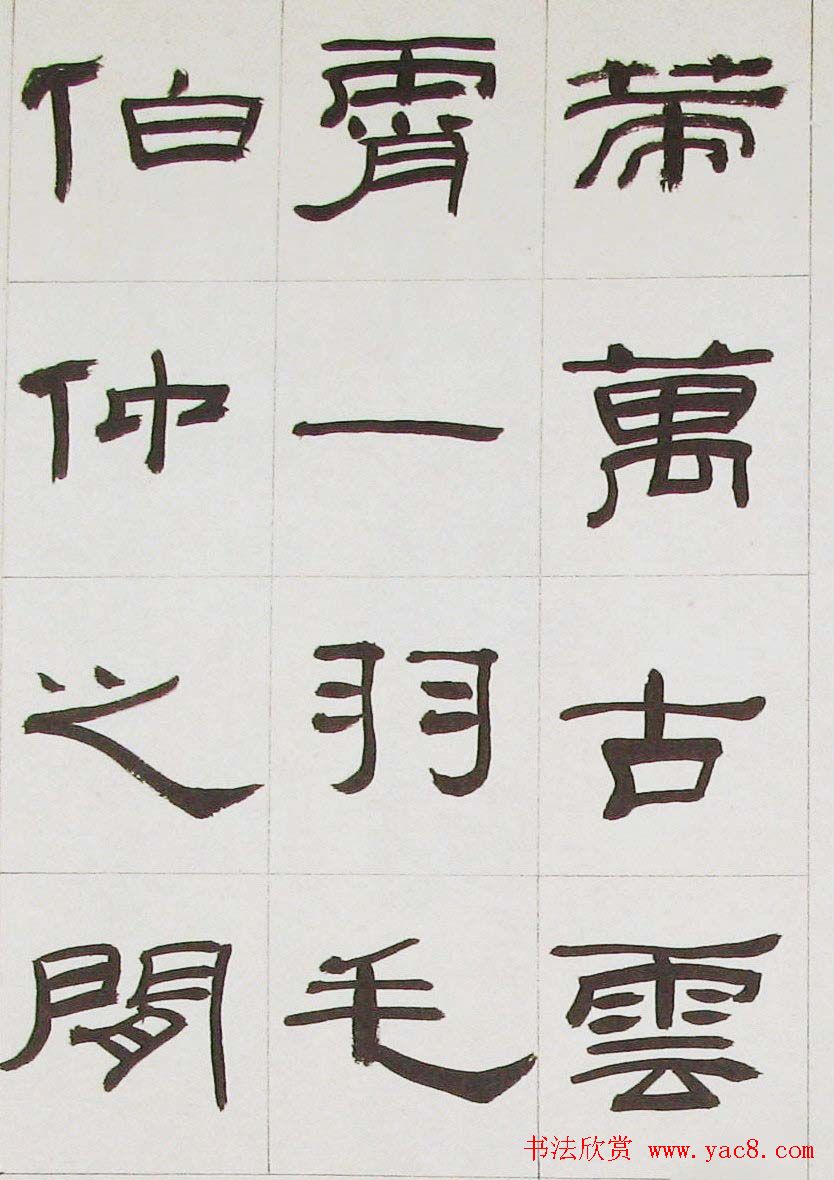 策萬古雲
霄一羽毛
伯仲之間
书法欣赏 www.yac8.com